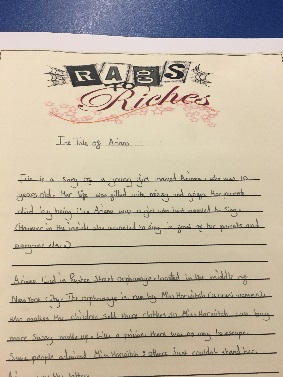 RAGS
TO
Riches
The Tale of Ariana
This is a story of a young girl named Ariana who was 10
years old. Her life was filled with misery and Her parents
died Ariana was a girl who just wanted to sing.
(However in the inside she wanted to sing in front of her parents and
everyone else.)
Ariana lived in Baxter Street orphanage located in the middle of
New York City. The orphanage is run by Miss Horwitch a women
who makes the children sell there clothes so Miss Horwitch can bring
more Sassy make up. Like a prison there was no way to escape.
Some people admired Miss Horwitch; others just couldn't stand her.